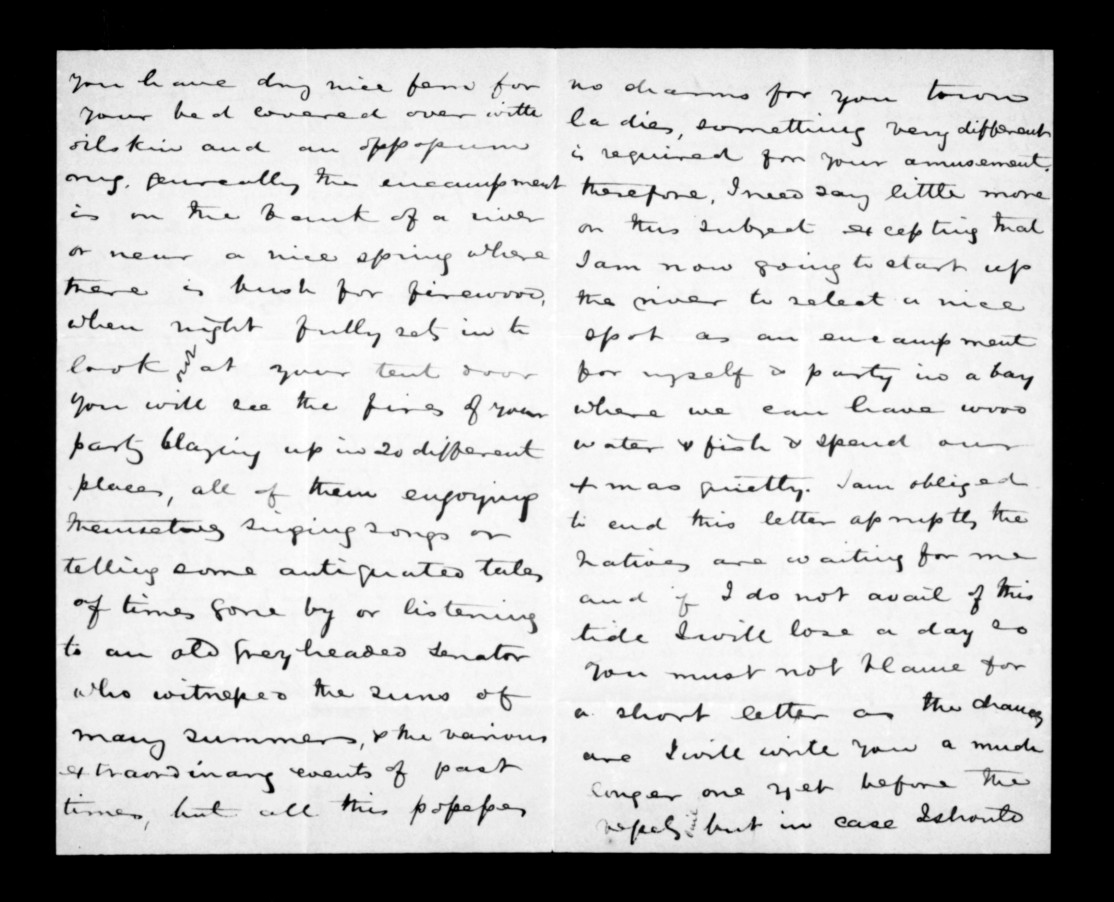 you have dry nice fern for
your bed covered over with
oilskin and an oppopum
rug. generally the encampment
is on the bank of a river
or near a nice spring where
there is bush for firewood,
when night fully sets in to
look out at your tent door
you will see the fires of your
party blazing up in 20 different
places, all of them engoying
themselves singing songs or
telling some antiquated tales
of times gone by or listening
to an old greyheaded senator
who witneped the suns of
many summers, & the various
extraordinary events of past
times, but all this popepes
no charms for you town
ladies, something very different
is required for your amusement,
therefore, I need say little more
on this subject excepting that
I am now going to start up
the river to select a nice
spot as an encampment
for myself & party in a bay
where we can have wood
water & fish & spend our
xmas quietly. I am obliged
to end this letter apruptly the
natives are waiting for me
and if I do not avail of this
tide I will lose a day so
you must not blame for
a short letter as the chances
are I will write you a much
longer one yet before the
vepels sail but in case I should